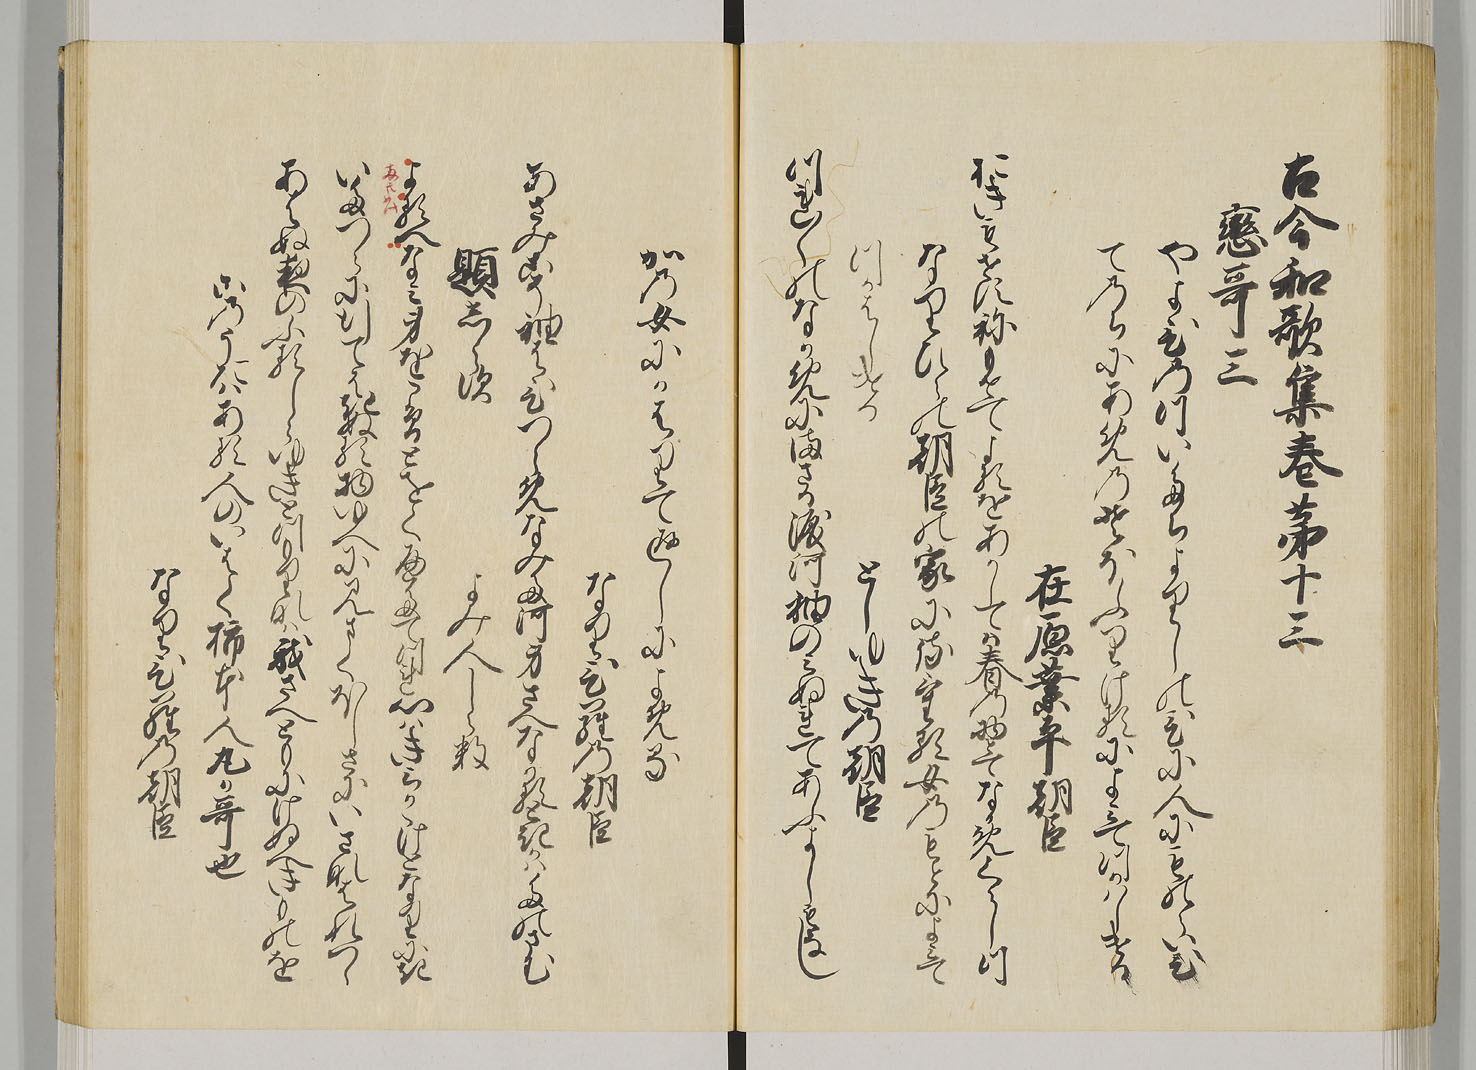 古今和歌集巻第十三
戀哥三
やよひのついたちよりしのひに人にものらいひ
てのちにあめのそほふりけるによみてつかはしける
在原業平朝臣
おきもせすねもせてよるをあかしては春の物とてなかめくらしつ
なりひらの朝臣の家に侍ける女のもとによみて
つかはしける
としゆきの朝臣
つれ〱のなかめにまさる涙河袖のみぬれてあふよしもなし
かの女にかはりて返しによめる
なりひらの朝臣
あさみこそ袖はひつらめなみた河身さへなかるときかはたのまむ
題しらす
よみ人しらす
よるへなみ身をこそとをくへたてつれ心はきみかかけとなりにき
いたつらに行てはきぬる物ゆへに見まくほしさにいさなはれつゝ
あはぬ夜のふる白ゆきとつもりなは我さへともにけぬへきものを
このうたはある人のいはく柿本人丸か哥也
なりひらの朝臣